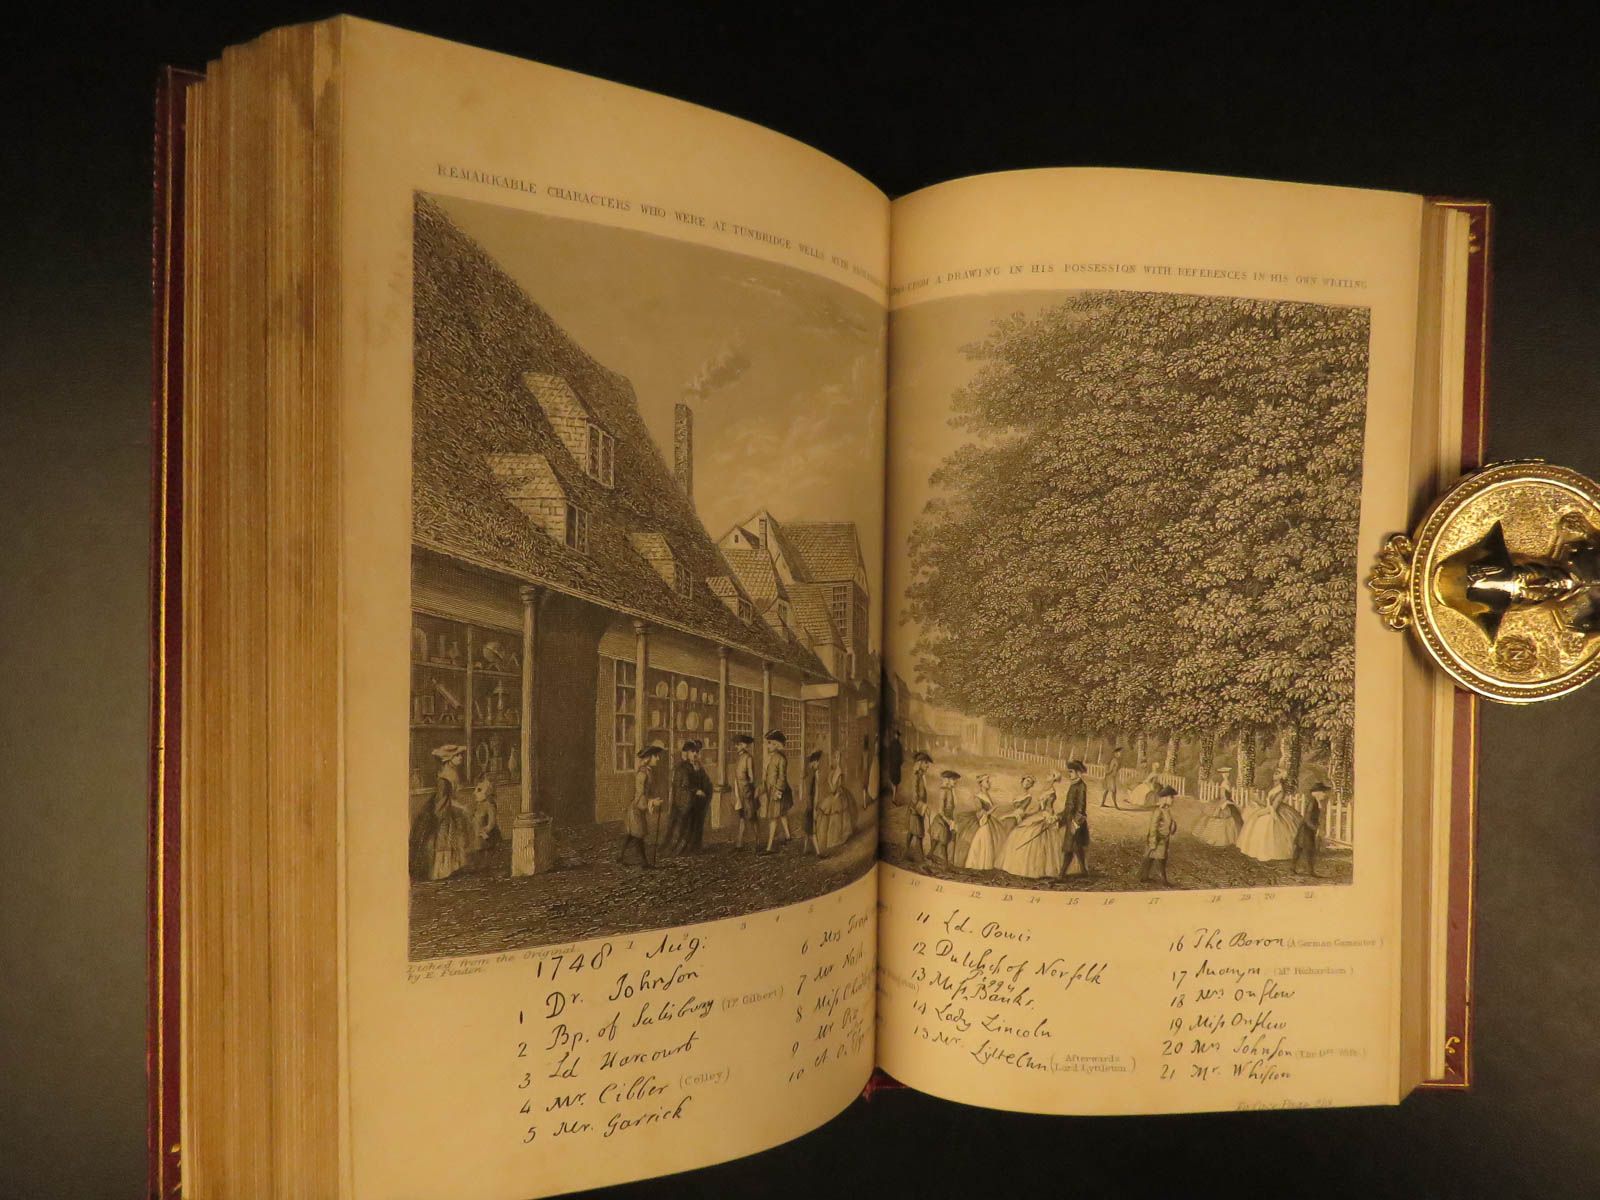 REMARKABLE CHARACTERS WHO WERE AT TUNBRIDGE WELLS WITH FROM A DRAWING IN HIS POSSESSION WITH REFERENCES IN HIS OWN WRITING
Etched from the Original
by E. Finden.
1 2 3 4 5 6
9 10 11 12 13 14 15 16 17 18 19 20 21
1748 Aug:
1 Dr. Johnson
2 Bp. of Salisbury (Dr. Gilbert)
3 Ld Harcourt
4 Mr. Cibber (Colley)
5 Mr. Garrick
6 Mrs
7 Mr Nash
8 Miss
9 Mr
10
11 Ld. Powis
12 Dutchess of Norfolk
13 Miss Peggy Banks.
14 Lady Lincoln
15 Mr. Lyttelton (Afterwards Lord Lyttleton.)
16 The Baron (A German Gamester)
17 Anonym (Mr. Richardson)
18 Mrs Onslow
19 Miss Onslow
20 Mrs Johnson (The Drs. Wife.)
21 Mr. Whiston
To face Page
N